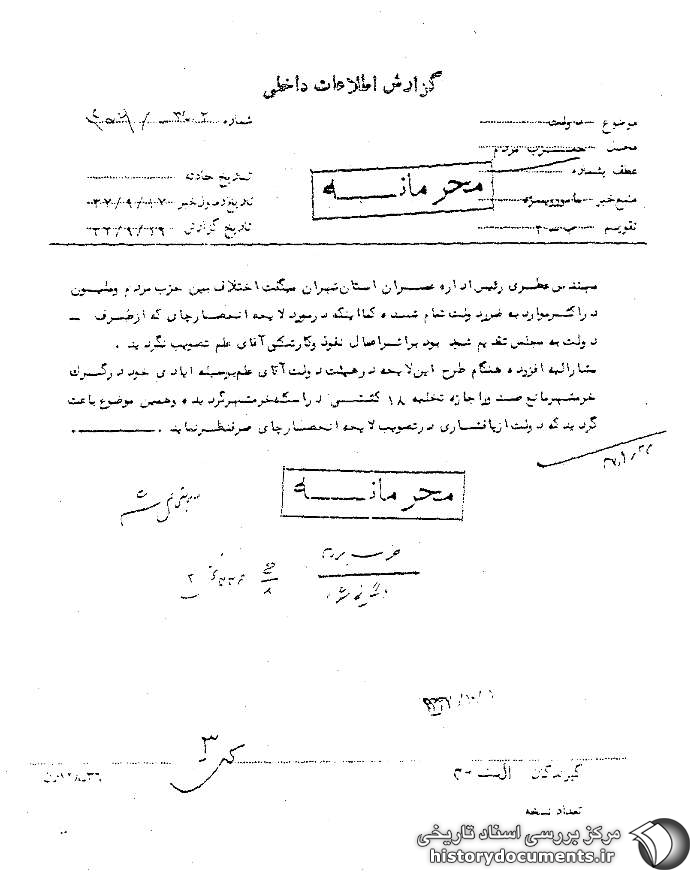 گزارش اطلاعات داخلی
موضوع دولت
شماره ۳۰۲
محل حزب مردم
عطف بشماره
تاریخ حادثه
محرمانه
منبع خبر مامور ویژه
تاریخ رسیدن خبر ۳۷/۹/۱۷
تقویم ب-۳
تاریخ گزارش ۳۷/۹/۲۹
مهندس عطری رئیس اداره عمران استان تهران میگفت اختلاف بین حزب مردم و ملیون
در اکثر موارد به ضرر دولت تمام شده کما اینکه در مورد لایحه انحصار چای که از طرف
دولت به مجلس تقدیم شده بود بر اثر اعمال نفوذ و کارشکنی آقای علم تصویب نگردید .
مشارالیه افزوده هنگام طرح این لایحه در هیئت دولت آقای علم بوسیله ایادی خود در گمرک
خرمشهر مانع صدور اجازه تخلیه ۱۸ کشتی در اسکله خرمشهر گردیده و همین موضوع باعث
گردید که دولت از پافشاری در تصویب لایحه انحصار چای صرفنظر نماید .
محرمانه
حزب مردم
۳
گیرندگان الف-۳
تعداد نسخه
مرکز بررسی اسناد تاریخی
historydocuments.ir